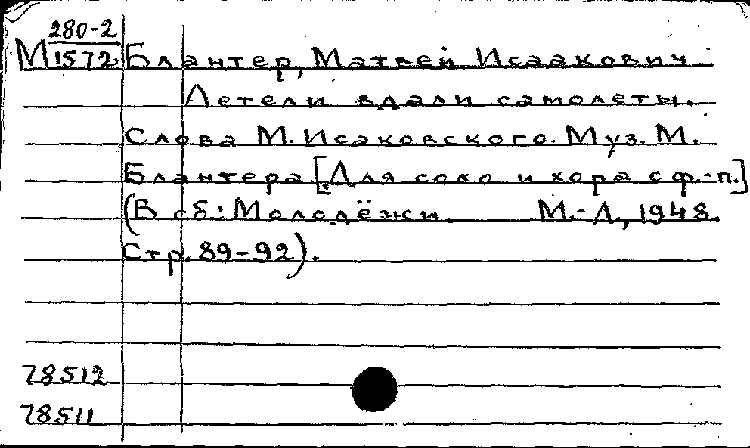 280-2
М 1572 Блантер, Матвей Исаакович
Летели вдали самолеты.
Слова М. Исаковского. Муз. М.
Блантера [Для соло и хора с ф.-п.]
(В сб: Молодёжи. М.-Л., 1948.
Стр. 89-92).
78512
78511